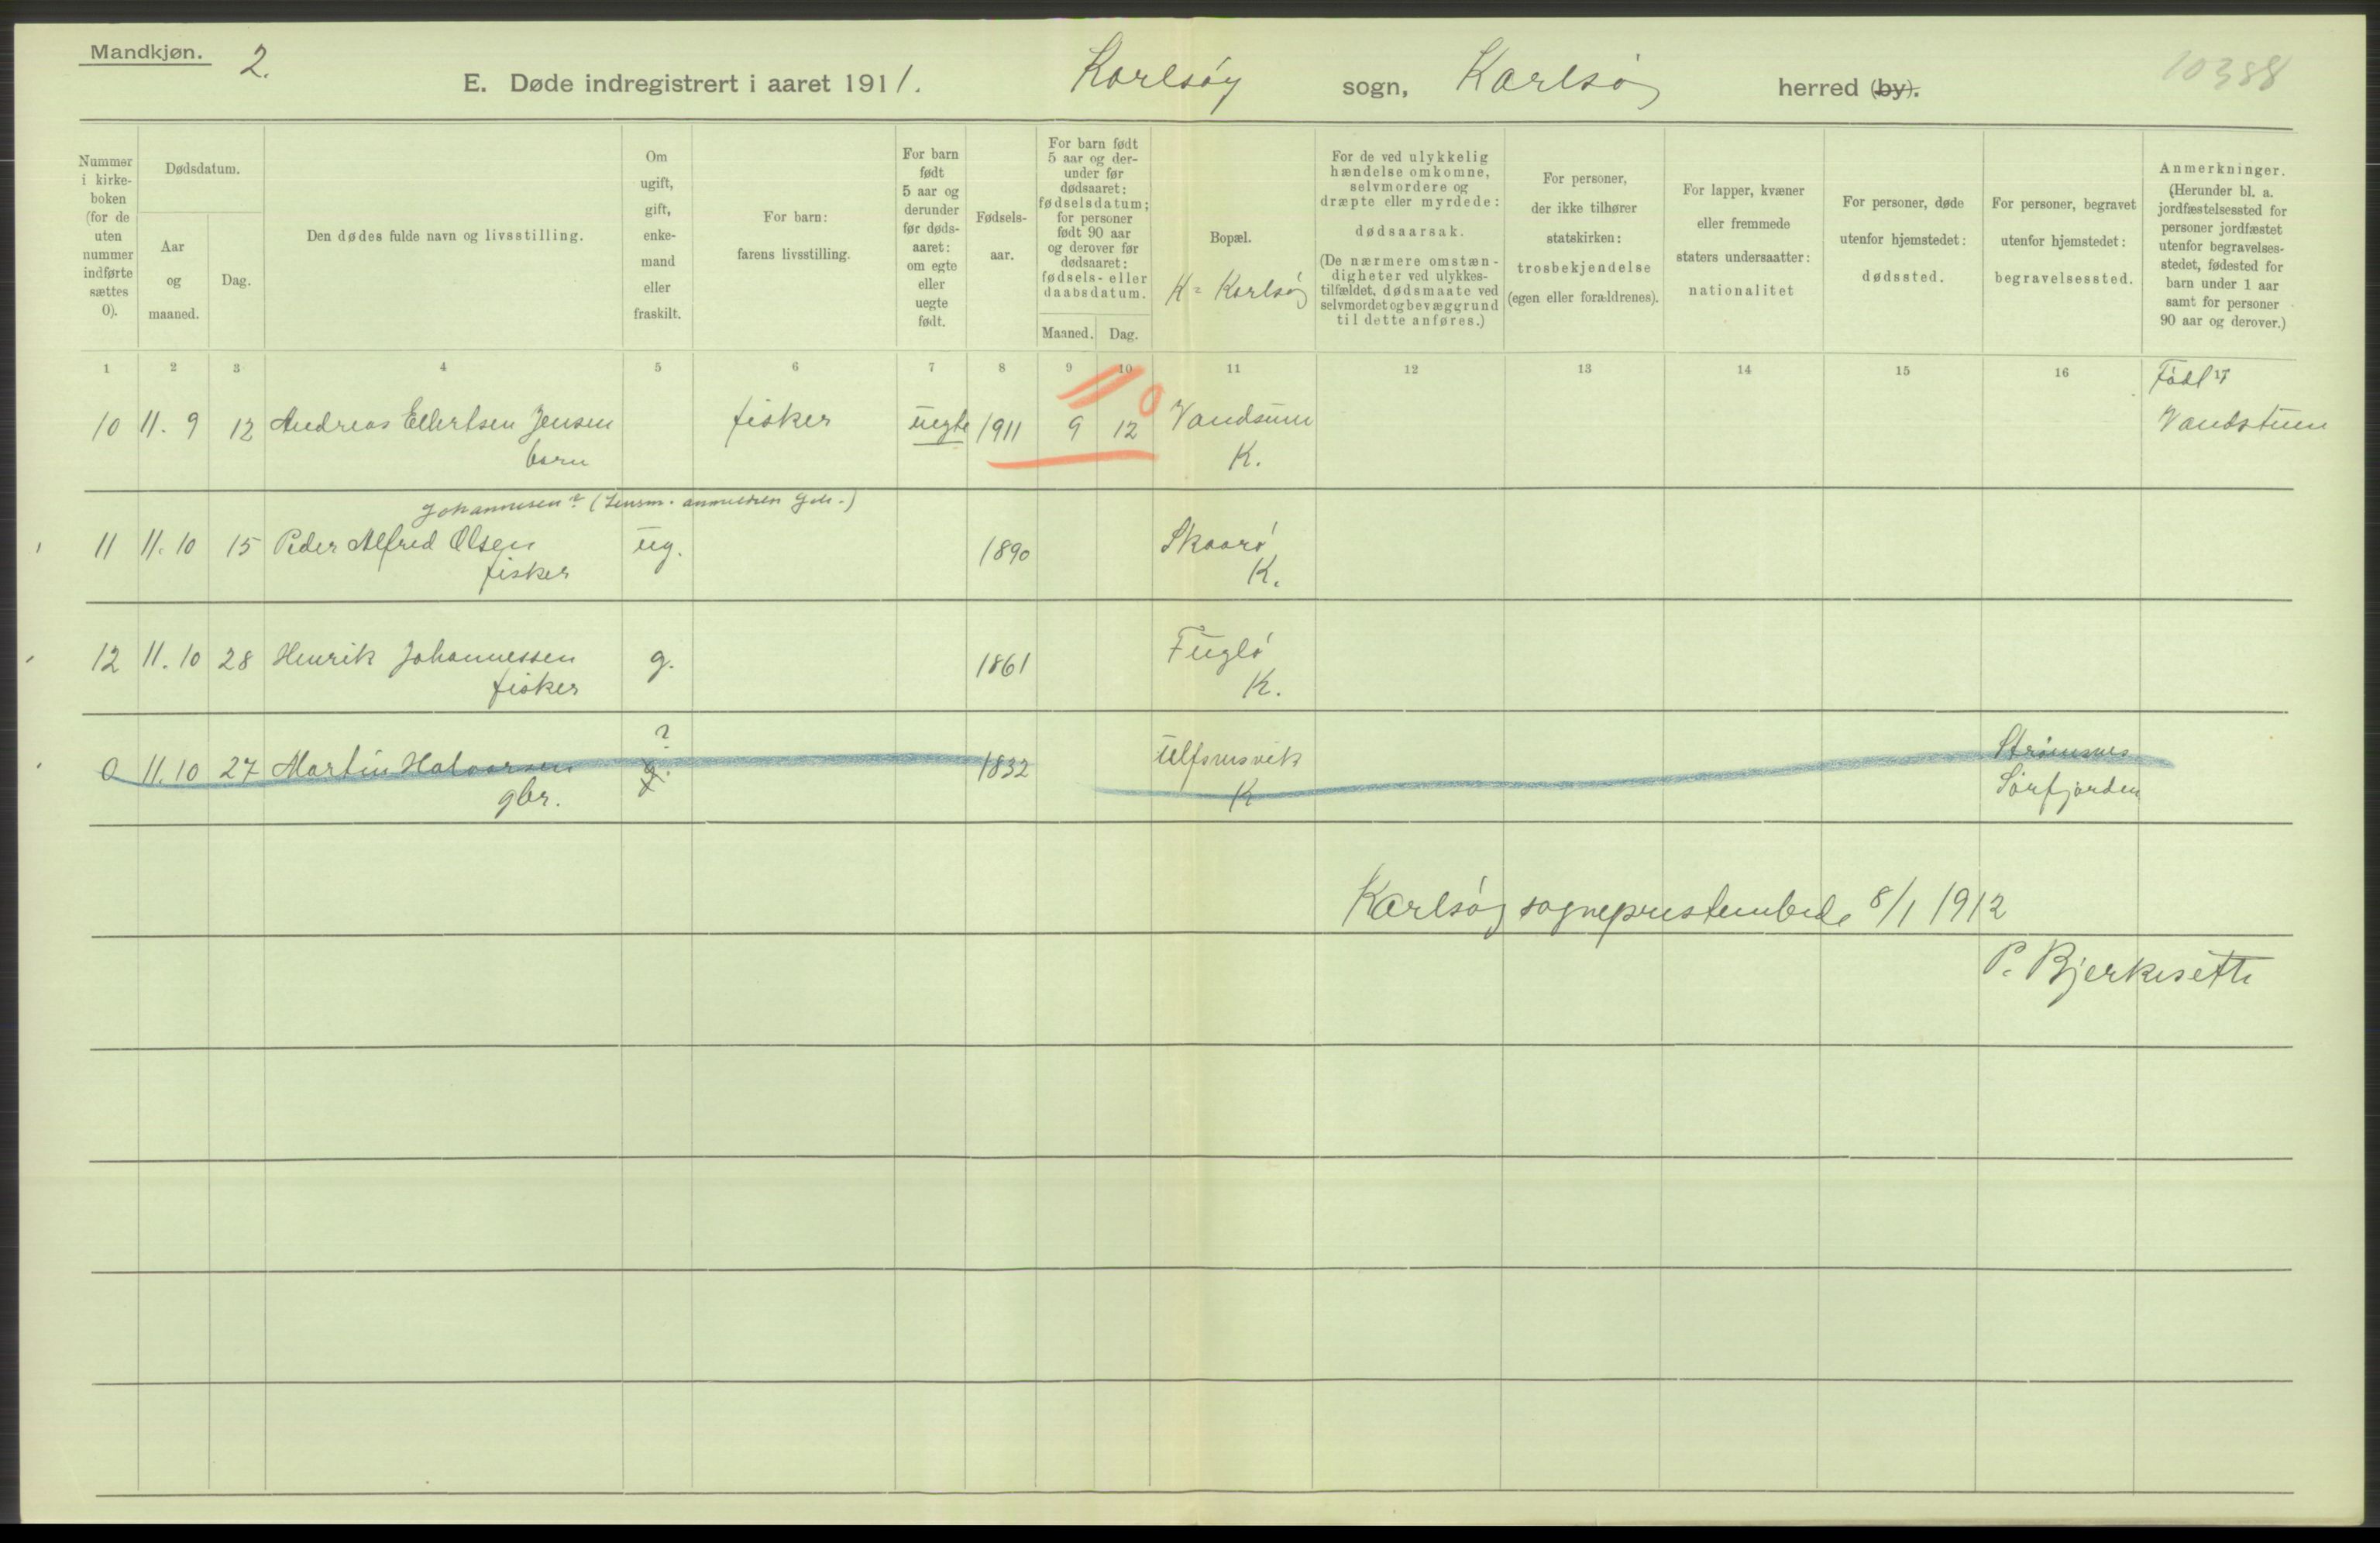 Mandkjøn.
2.
E. Døde indregistrert i aaret 1911. Karlsøy sogn, Karlsøy herred (by).
10388
Nummer i kirke-boken (for de uten nummer indførte sættes 0).
Dødsdatum.
Aar og maaned.
Dag.
Den dødes fulde navn og livsstilling.
Om ugift, gift, enke-mand eller fraskilt.
For barn: farens livsstilling.
For barn født 5 aar og derunder før døds-aaret: om egte eller uegte født.
Fødsels-aar.
For barn født 5 aar og der-under før dødsaaret: fødselsdatum; for personer født 90 aar og derover før dødsaaret: fødsels- eller daabsdatum.
Maaned. Dag.
Bopæl.
K = Karlsøy
For de ved ulykkelig hændelse omkomne, selvmordere og dræpte eller myrdede: dødsaarsak. (De nærmere omstæn-digheter ved ulykkes-tilfældet, dødsmaate ved selvmordet og bevæggrund til dette anføres.)
For personer, der ikke tilhører statskirken: trosbekjendelse (egen eller forældrenes).
For lapper, kvæner eller fremmede staters undersaatter: nationalitet
For personer, døde utenfor hjemstedet: dødssted.
For personer, begravet utenfor hjemstedet: begravelsessted.
Anmerkninger. (Herunder bl. a. jordfæstelsessted for personer jordfæstet utenfor begravelses-stedet, fødested for barn under 1 aar samt for personer 90 aar og derover.)
1 2 3 4 5 6 7 8 9 10 11 12 13 14 15 16
Født
10 11. 9 12 Andreas Ellertsen Jensen fisker uegte 1911 9 12 0 Vandsuun Vandstuen
barn K.
Johannesen? (Lensm. anmeldelse)
11 11. 10 15 Peder Alfred Olsen ug. 1890 Skaarø
fisker K.
12 11. 10 28 Henrik Johannessen g. 1861 Fuglø
fisker K.
?
0 11. 10 27 Martin Halvorsen g. 1832 Ulfsnesvik Strømsnes
gbr. K Sørfjorden
Karlsøy sogneprestembede 8/1 1912
P. Bjerkesette